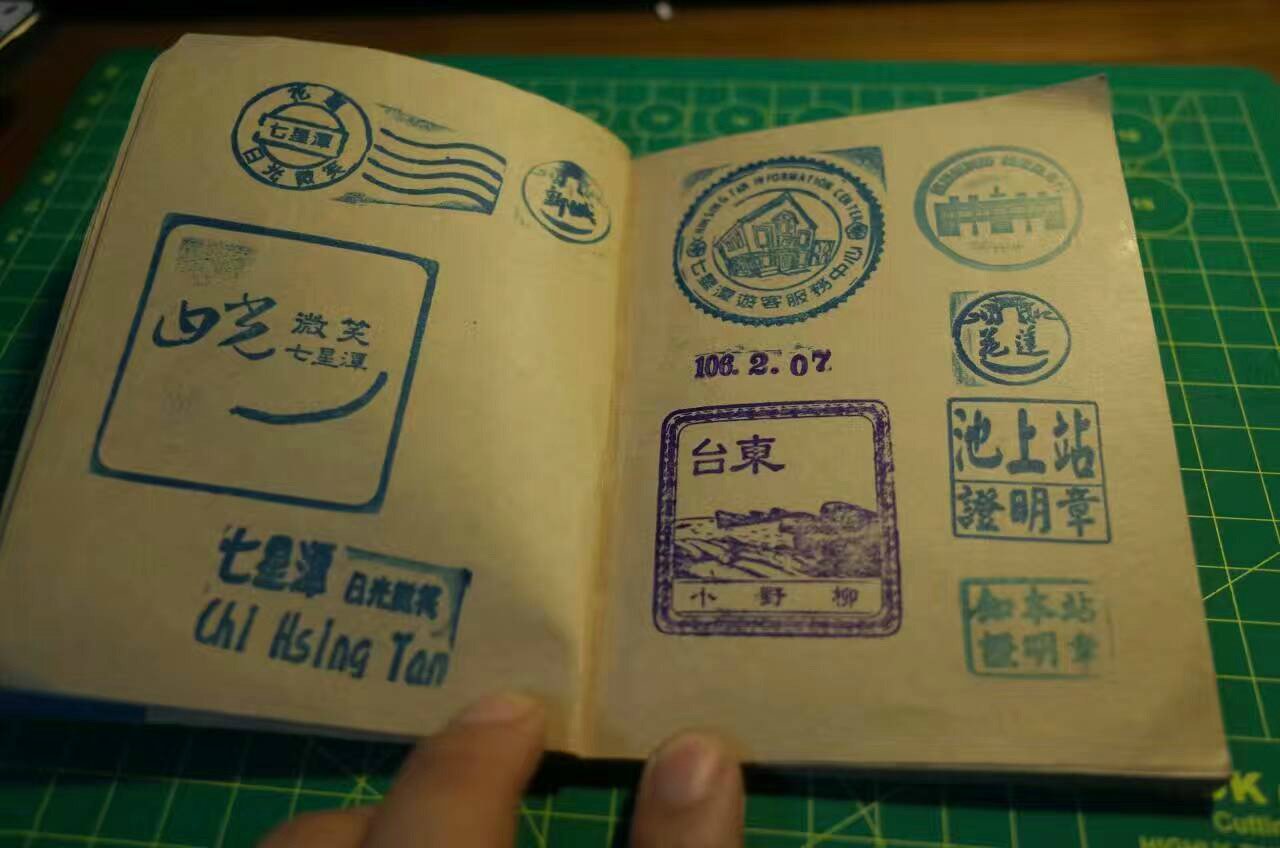 花蓮
七星潭
日光微笑
新城
曉 微笑
七星潭
七星潭 日光微笑
Chi Hsing Tan
CHIHSING TAN INFORMATION CENTER
七星潭遊客服務中心
106. 2. 07
台東
小野柳
花蓮
池上站
證明章
知本站
證明章
Cutting